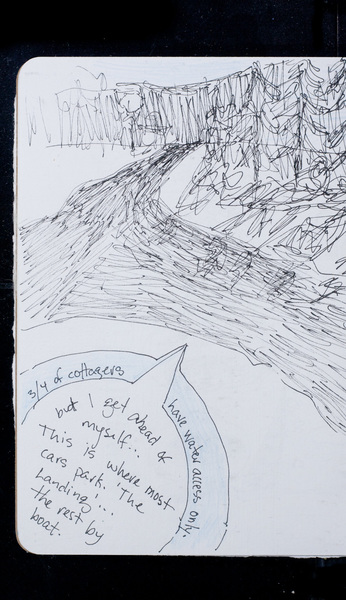 3/4 of cottagers
have water access only.
but I get ahead of
myself...
This is where most
cars park. 'The
Landing'...
the rest by
boat.